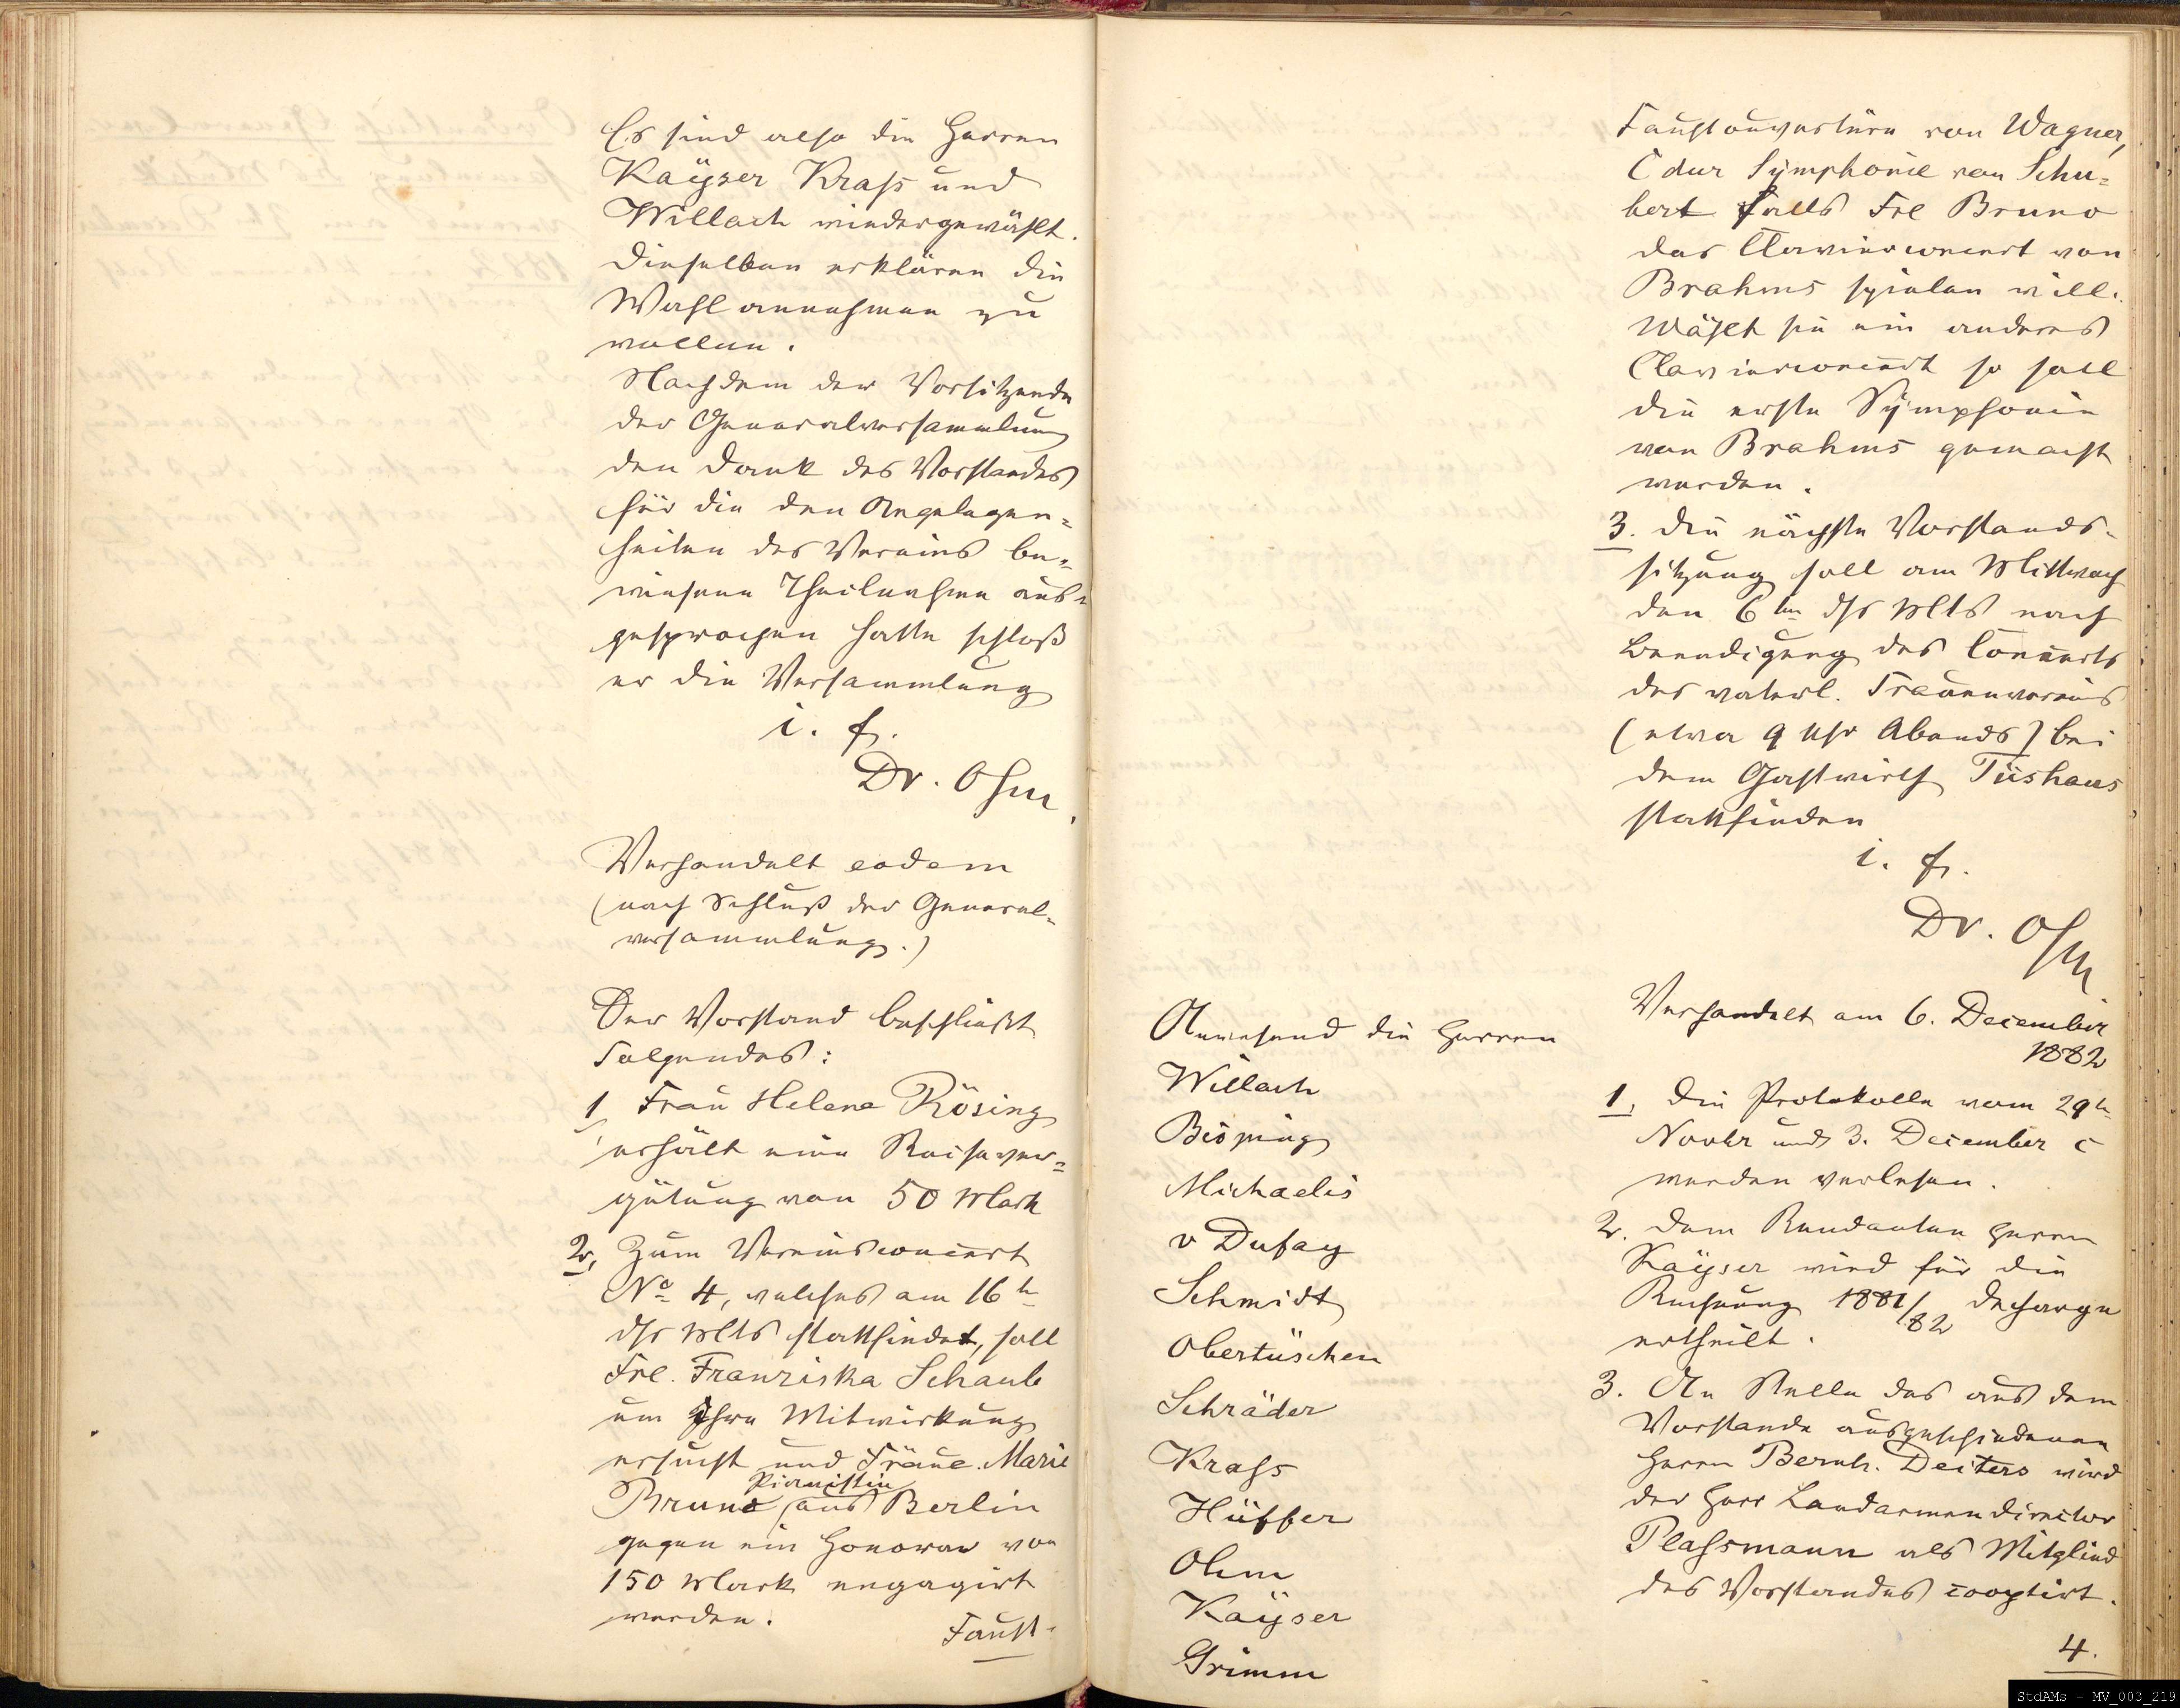 Es sind also die Herren
Kaÿser Krass und
Willach wiedergewählt.
Dieselben erklären die
Wahl annehmen zu
wollen.
Nachdem der Vorsitzende
der Generalversammlung
den Dank des Vorstandes
für die den Angelegen=
heiten des Vereins be=
wiesene Theilnahme aus=
gesprochen hatte schloß
er die Versammlung
i. f.
Dr. Ohm.
Verhandelt eodem
(nach Schluß der General=
versammlung.)
Der Vorstand beschließt
Folgendes:
1, Frau Helene Rösing
erhält eine Reisever=
gütung von 50 Mark
2, Zum Vereinsconcert
No 4, welches am 16t
dss Mts stattfindet, soll
Frl. Franziska Schaub
um Ihre Mitwirkung
ersucht und Fräul. Marie
Pianistin
Bruno aus Berlin
gegen ein Honorar von
150 Mark engagirt
werden.
Faust-
Faustouvertüre von Wagner,
C dur Symphonie von Schu=
bert falls Frl Bruno
das Clavierconcert von
Brahms spielen will.
Wählt sie ein anderes
Clavierconcert so soll
die erste Sÿmphonie
von Brahms gemacht
werden.
3. Die nächste Vorstands-
sitzung soll am Mittwoch
den 6ten dss Mts nach
Beendigung des Concerts
des vaterl. Frauenvereins
(etwa 9 Uhr Abends) bei
dem Gastwirth Tüshaus
stattfinden
i. f.
Dr. Ohm
Verhandelt am 6. December
1882
Anwesend die Herren
Willach
Bisping
Michaelis
v Dufay
Schmidt
Obertüschen
Schräder
Krass
Hüffer
Ohm
Kaÿser
Grimm
1, Die Protokolle vom 29t
Novbr und 3. December c
werden verlesen.
2. Dem Rendanten Herrn
Kaÿser wird für die
Rechnung 1881/82 Decharge
ertheilt.
3. An Stelle des aus dem
Vorstande ausgeschiedenen
Herrn Bernh. Deiters wird
der Herr Landarmendirector
Plassmann als Mitglied
des Vorstandes cooptirt.
4.
StdAMs - MV_003_219